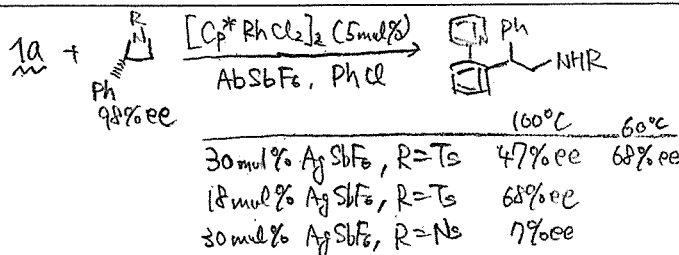 1a + R N Ph 98%ee [Cp* RhCl2]2 (5mol%) AbSbF6, PhCl N Ph NHR
100°C 60°C
30 mol% AgSbF6, R=Ts 47%ee 68%ee
18 mol% AgSbF6, R=Ts 68%ee
30 mol% AgSbF6, R=Ns 7%ee